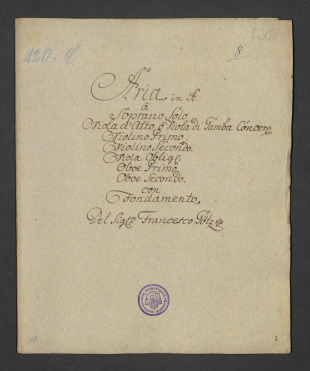 120-d
8
Aria in A.
a
Soprano Solo
Viola d'Alto, o Viola di Gamba Concer.
Violino Primo.
Violino Secondo.
Viola Oblig.
Oboe Primo
Oboe Secondo.
con
Fondamento,
Del Sig.re Francesco Götz